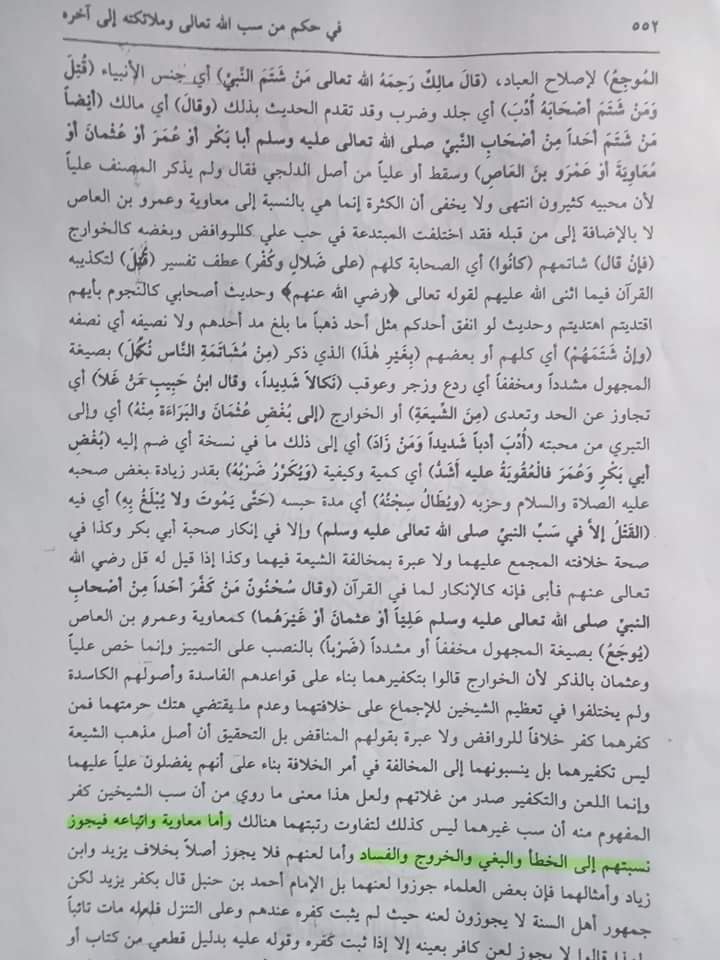 ٥٥٢
في حكم من سب الله تعالى وملائكته إلى آخره
المُوجِعُ) لإصلاح العباد، (قالَ مالِكٌ رَحِمَهُ الله تعالى مَنْ شَتَمَ النَّبيَّ) أي جنس الأنبياء (قُتِلَ
وَمَنْ شَتَمَ أصْحَابَهُ أُدِّبَ) أي جلد وضرب وقد تقدم الحديث بذلك (وقالَ) أي مالك (أيْضاً
مَنْ شَتَمَ أحَداً مِنْ أصْحَابِ النَّبيِّ صلى الله تعالى عليه وسلم أبا بَكْر أوْ عُمَرَ أوْ عُثْمانَ أوْ
مُعَاوِيَةَ أوْ عَمْرَو بنَ العَاصِ) وسقط أو علياً من أصل الدلجي فقال ولم يذكر المصنف علياً
لأن محبيه كثيرون انتهى ولا يخفى أن الكثرة إنما هي بالنسبة إلى معاوية وعمرو بن العاص
لا بالإضافة إلى من قبله فقد اختلفت المبتدعة في حب علي كالروافض وبغضه كالخوارج
(فإنْ قال) شاتمهم (كانُوا) أي الصحابة كلهم (على ضَلالٍ وكُفْر) عطف تفسير (قُتِلَ) لتكذيبه
القرآن فيما اثنى الله عليهم لقوله تعالى ﴿رضي الله عنهم﴾ وحديث أصحابي كالنجوم بأيهم
اقتديتم اهتديتم وحديث لو انفق أحدكم مثل أحد ذهباً ما بلغ مد أحدهم ولا نصيفه أي نصفه
(وإنْ شَتَمَهُمْ) أي كلهم أو بعضهم (بِغَيرِ هٰذا) الذي ذكر (مِنْ مُشاتَمَةِ النَّاس نُكِّلَ) بصيغة
المجهول مشدداً ومخففاً أي ردع وزجر وعوقب (نَكالاً شَدِيداً، وقال ابنُ حَبِيبٍ مَنْ غَلاَ) أي
تجاوز عن الحد وتعدى (مِنَ الشِّيعَةِ) أو الخوارج (إلى بُغْضِ عُثْمَانَ والبَرَاءَةِ مِنْهُ) أي وإلى
التبري من محبته (أُدِّبَ أدباً شديداً وَمَنْ زَادَ) أي إلى ذلك ما في نسخة أي ضم إليه (بُغْضِ
أبي بَكْرٍ وَعُمَرَ فالْعُقُوبَةُ عليه أشَدُّ) أي كمية وكيفية (وَيُكَرَّرُ ضَرْبُهُ) بقدر زيادة بغض صحبه
عليه الصلاة والسلام وحزبه (ويُطَالُ سِجْنُهُ) أي مدة حبسه (حَتَّى يَمُوتَ ولا يُبْلَغُ بِهِ) أي فيه
(القَتْلُ إلاَّ في سَبِّ النبيِّ صلى الله تعالى عليه وسلم) وإلا في إنكار صحبة أبي بكر وكذا في
صحة خلافته المجمع عليهما ولا عبرة بمخالفة الشيعة فيهما وكذا إذا قيل له قل رضي الله
تعالى عنهم فأبى فإنه كالإنكار لما في القرآن (وقال سُحْنُونٌ مَنْ كَفَّرَ أحَداً مِنْ أصْحابِ
النبيِّ صلى الله تعالى عليه وسلم عَلِيّاً أوْ عثمانَ أوْ غَيْرَهُما) كمعاوية وعمرو بن العاص
(يُوجَعُ) بصيغة المجهول مخففاً أو مشدداً (ضَرْباً) بالنصب على التمييز وإنما خص علياً
وعثمان بالذكر لأن الخوارج قالوا بتكفيرهما بناء على قواعدهم الفاسدة وأصولهم الكاسدة
ولم يختلفوا في تعظيم الشيخين للإجماع على خلافتهما وعدم ما يقتضي هتك حرمتهما فمن
كفرهما كفر خلافاً للروافض ولا عبرة بقولهم المناقض بل التحقيق أن أصل مذهب الشيعة
ليس تكفيرهما بل ينسبونهما إلى المخالفة في أمر الخلافة بناء على أنهم يفضلون علياً عليهما
وإنما اللعن والتكفير صدر من غلاتهم ولعل هذا معنى ما روي من أن سب الشيخين كفر
المفهوم منه أن سب غيرهما ليس كذلك لتفاوت رتبتهما هنالك وأما معاوية واتباعه فيجوز
نسبتهم إلى الخطأ والبغي والخروج والفساد وأما لعنهم فلا يجوز أصلاً بخلاف يزيد وابن
زياد وأمثالهما فإن بعض العلماء جوزوا لعنهما بل الإمام أحمد بن حنبل قال بكفر يزيد لكن
جمهور أهل السنة لا يجوزون لعنه حيث لم يثبت كفره عندهم وعلى التنزل فلعله مات تائباً
ولهذا قالوا لا يجوز لعن كافر بعينه إلا إذا ثبت كفره وقوله عليه بدليل قطعي من كتاب أو